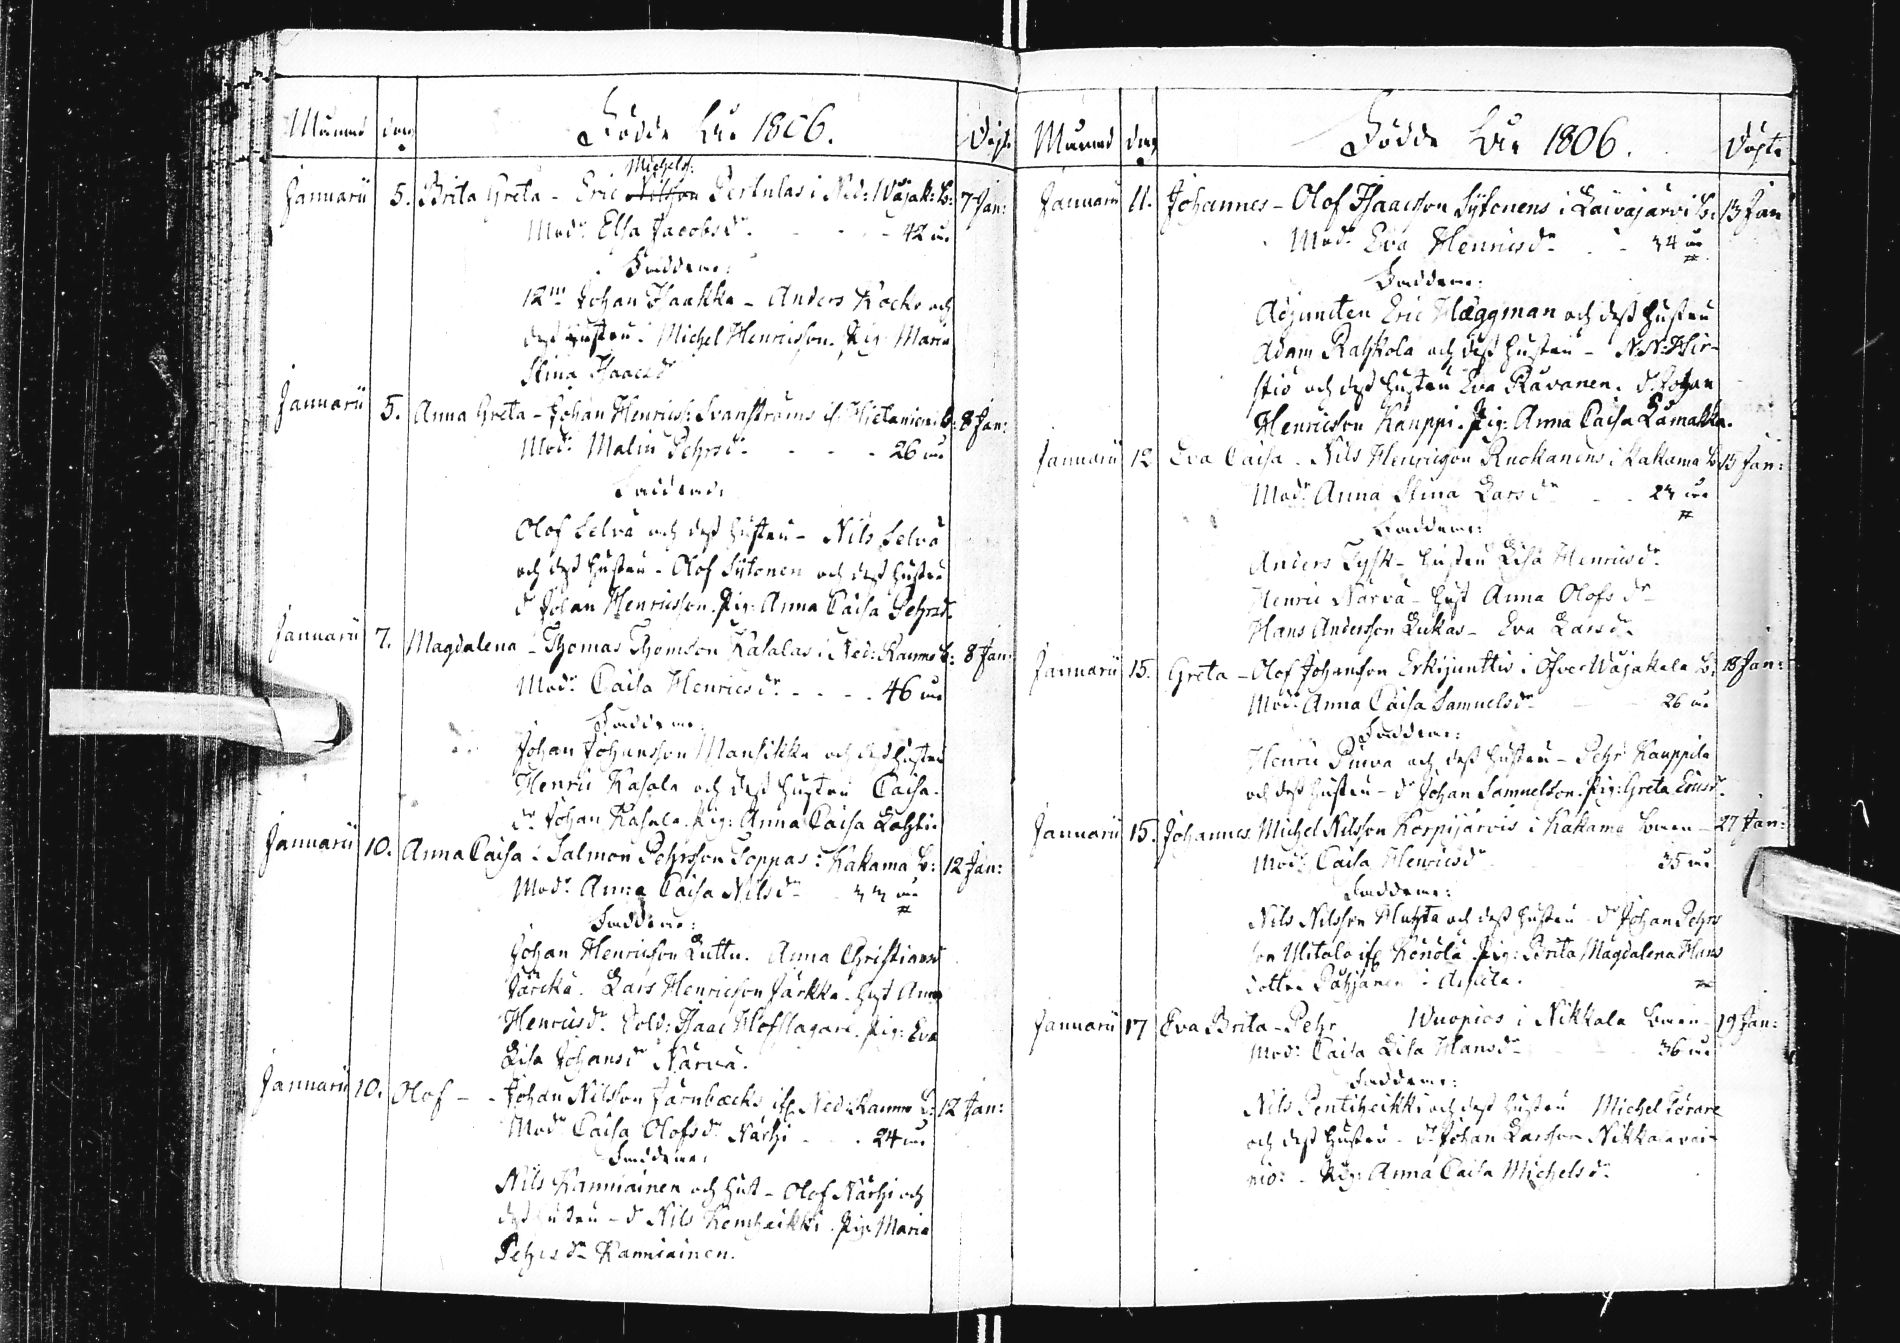 Månad dag Födde År 1806. Döpt
Michels:
Januarii 5. Brita Greta - Eric Nilsson Pertulas i Ned: Wojak: b: 7 Jan:
Modr Elsa Jacobsdr - - - 42 år
Faddrar:
Johan Haakka - Anders Kocko och
dess hustru. Michel Henricsson. Pig: Maria
Stina Isaacsdr
Januarii 5. Anna Greta - Johan Henrics: Svanströms if. Hietaniemi b: 8 Jan:
Modr Malin Pehrsdr - - - 26 år
Faddrar:
Olof Selvä och dess hustru - Nils Selvä
och dess hustru - Olof Sytonen och dess hustru
dr Johan Henricsson. Pig: Anna Caisa Pehrsdr
Januarii 7. Magdalena - Thomas Thomson Kasalas i Ned: Raumo b: 8 Jan:
Modr Caisa Henricsdr - - - 46 år
Faddrar:
Johan Johansson Mansikka och dess hustru
Henric Kasala och dess hustru Caisa.
dr Johan Kasala. Pig: Anna Caisa Lahti.
Januarii 10. Anna Caisa - Salmon Pehrsson Soppas i Kakama b: 12 Jan:
Modr Anna Caisa Nilsdr - 33 år
Faddrar:
Johan Henricsson Luttu. Anna Christiansd
Järckä. Lars Henricsson Järkkä. Hust Anna
Henricsdr Sold: Isaac Hofslagare. Pig: Eva
Lisa Johansdr Närvä.
Januarii 10. Olof - Johan Nilsson Järnbäcks if. Ned: Raumo b: 12 Jan:
Modr Caisa Olofsdr Närhi - - 24 år
Faddrar:
Nils Kanniainen och hust - Olof Närhi och
dess hustru - dr Nils Kemheikki. Pig: Maria
Pehrsdr Kanniainen.
Månad dag Födde År 1806. Döpte
Januarii 11. Johannes - Olof Isaacsson Sytonens i Laivajärvi b: 13 Jan
Modr Eva Henricsdr - - 34 år
Faddrar:
Adjuncten Eric Hæggman och dess hustru
Adam Rahkola och dess hustru - N: N: Hir-
stiö och dess hustru Eva Rävanen. dr Johan
Henricsson Kauppi. Pig: Anna Caisa Lämakka.
Januarii 12 Eva Caisa - Nils Henricsson Ruokanens i Kakama b: 15 Jan:
Modr Anna Stina Larsdr - - 23 år
Faddrar:
Anders Tysk - hustru Lisa Henricsdr
Henric Närvä - hust Anna Olofsdr
Hans Andersson Lukas - Eva Larsdr
Januarii 15. Greta - Olof Johansson Erkijunttis i Öfver Wojakala b: 18 Jan:
Modr Anna Caisa Samuelsdr - 26 år
Faddrar:
Henric Puiva och dess hustru - Pehr Kauppila
och dess hustru - dr Johan Samuelsson. Pig: Greta Ericsdr
Januarii 15. Johannes Michel Nilsson Korpijärvis i Kakama byen - 27 Jan:
Modr Caisa Henricsdr 35 år
Faddrar:
Nils Nilsson Huhta och dess hustru dr Johan Pehrs
son Uitalo if. Könölä. Pig: Brita Magdalena Hans
dotter Pähjänen i Arpela.
Januarii 17 Eva Brita - Pehr Wuopios i Nikkala byen - 19 Jan:
Modr Caisa Lisa Hansdr - - 36 år
Faddrar:
Nils Pentiheikki och dess hustru Michel Pörare
och dess hustru - dr Johan Larsson Nikkalavai-
nio. - Pig: Anna Caisa Michelsdr